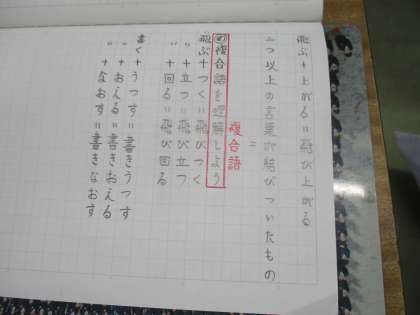 飛ぶ+上がる=飛び上がる
二つ以上の言葉が結びついたもの
=
複合語
め複合語を理解しよう
飛ぶ+つく=飛びつく
〃+立つ=飛び立つ
〃+回る=飛び回る
書く+うつす=書きうつす
〃+おえる=書きおえる
〃+なおす=書きなおす